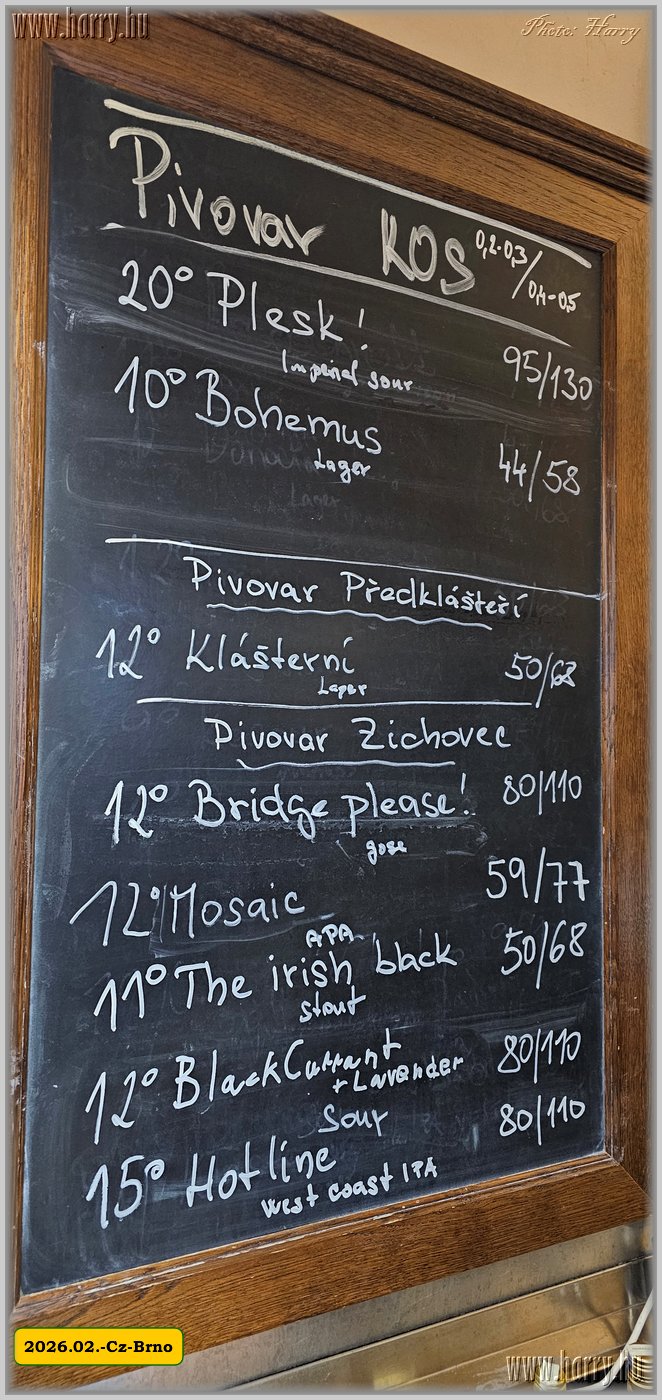 www.harry.hu
Photo: Harry
Pivovar KOS 0,2-0,3/0,4-0,5
20° Plesk!
Imperial sour 95/130
10° Bohemus
Lager 44/58
Pivovar Předklášteří
12° Klášterní 50/68
Lager
Pivovar Zichovec
12° Bridge please! 80/110
gose
12° Mosaic 59/77
APA
11° The irish black 50/68
stout
12° BlackCurrant 80/110
+Lavender
Sour
15° Hotline 80/110
West coast IPA
2026.02.-Cz-Brno
www.harry.hu